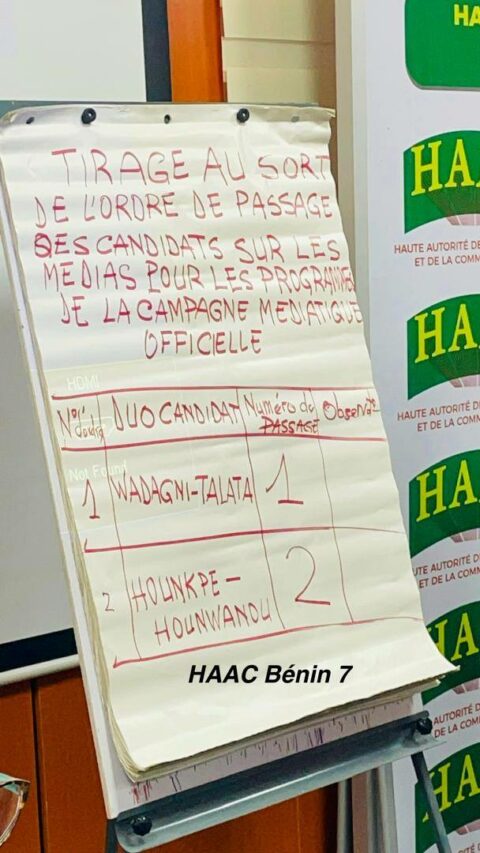 TIRAGE AU SORT
DE L'ORDRE DE PASSAGE
DES CANDIDATS SUR LES
MEDIAS POUR LES PROGRAMMES
DE LA CAMPAGNE MEDIATIQUE
OFFICIELLE
HDMI
DUO CANDIDAT Numéro de PASSAGE
Not Found
1 WADAGNI-TALATA 1
2 HOUNKPE-
HOUNWANOU 2
HAAC Bénin 7
HA
HA
HAUTE AUTORITÉ DE
ET DE LA COMM
HA
HAUTE AUTORITÉ DE
ET DE LA COMM
HA
UTE AUTORITÉ DE
ET DE LA COMM
HA
AUTORITÉ DE
DE LA COMM
HA